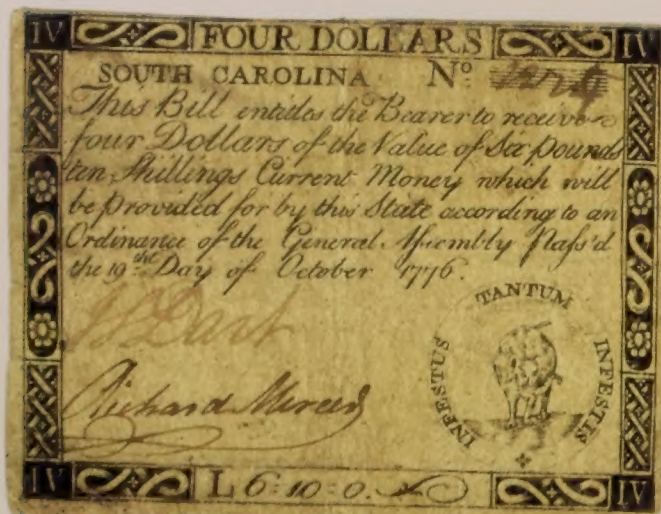 IV FOUR DOLLARS IV
SOUTH CAROLINA Nº
This Bill entitles the Bearer to receive
four Dollars of the Value of Six pounds
ten Shillings Current Money which will
be provided for by this State according to an
Ordinance of the General Assembly Pass'd
the 19th Day of October 1776.
TANTUM
INFESTUS INFESTIS
Dart
Richard
IV L 6:10:0. IV